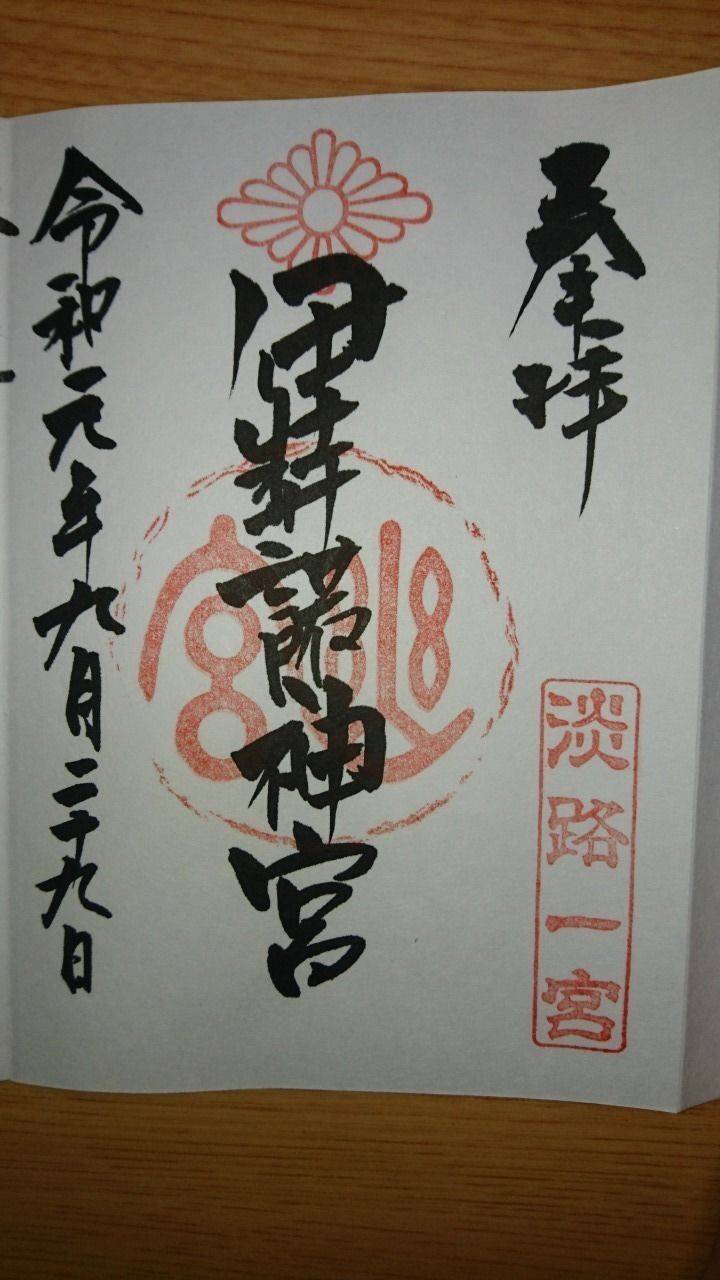 奉拝
淡路一宮
伊弉諾神宮
令和元年九月二十九日